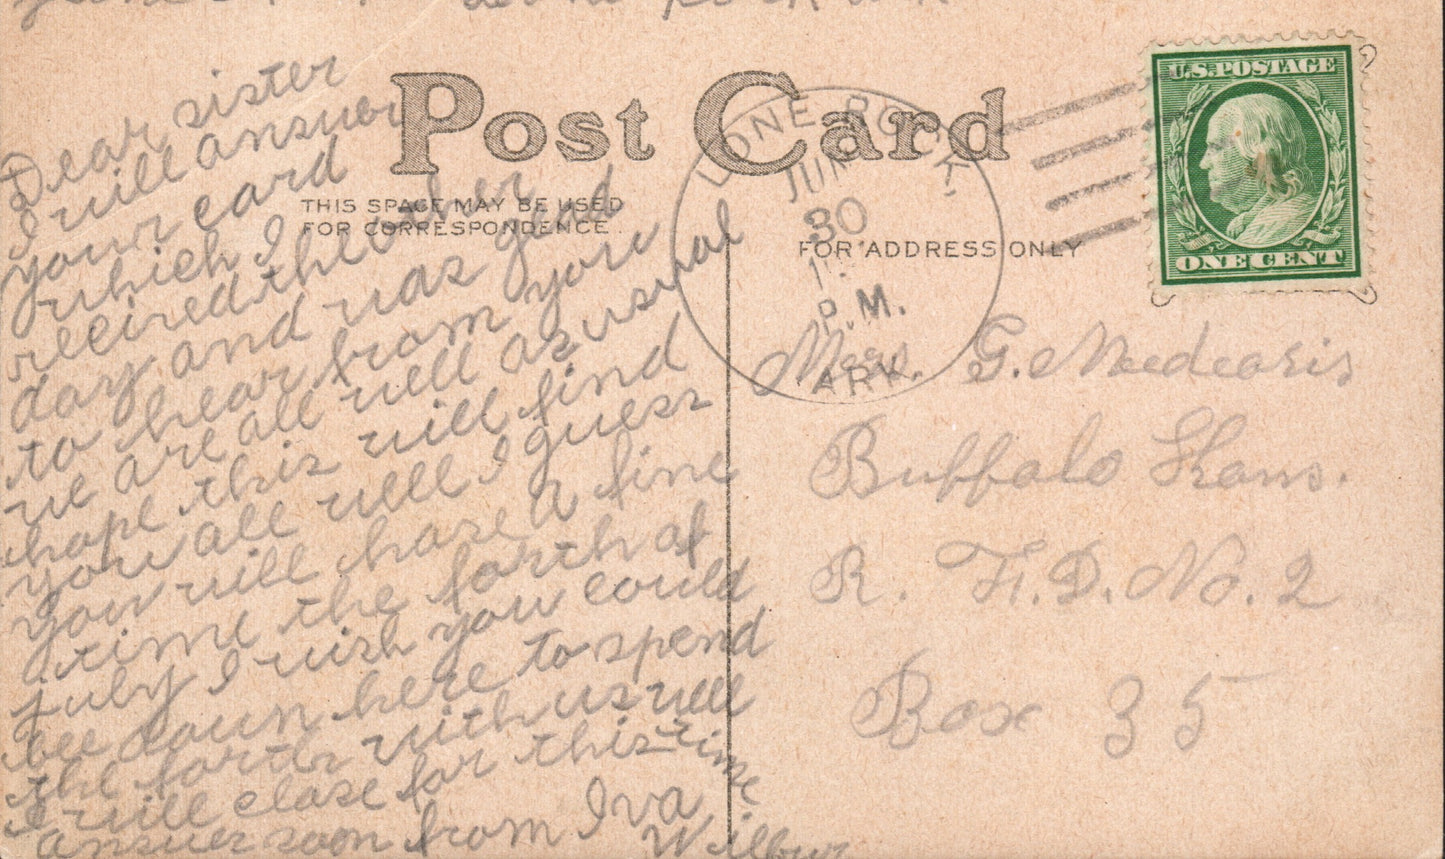 Lone Rock Ark
Dear sister
I will answer
your card
which I
recived the other
day and was glad
to hear from you
we are all well as usual
hope this will find
you all well I guess
you will have a fine
time the forth of
July I wish you could
bee down here to spend
the forth with us well
I will close for this time
answer soon from Iva
Wilbur
Post Card
THIS SPACE MAY BE USED
FOR CORRESPONDENCE.
FOR ADDRESS ONLY
LONE ROCK,
JUN
30
P.M.
ARK.
U.S. POSTAGE
ONE CENT
Mrs. G. Medearis
Buffalo Kans.
R. F. D. No. 2
Box 35